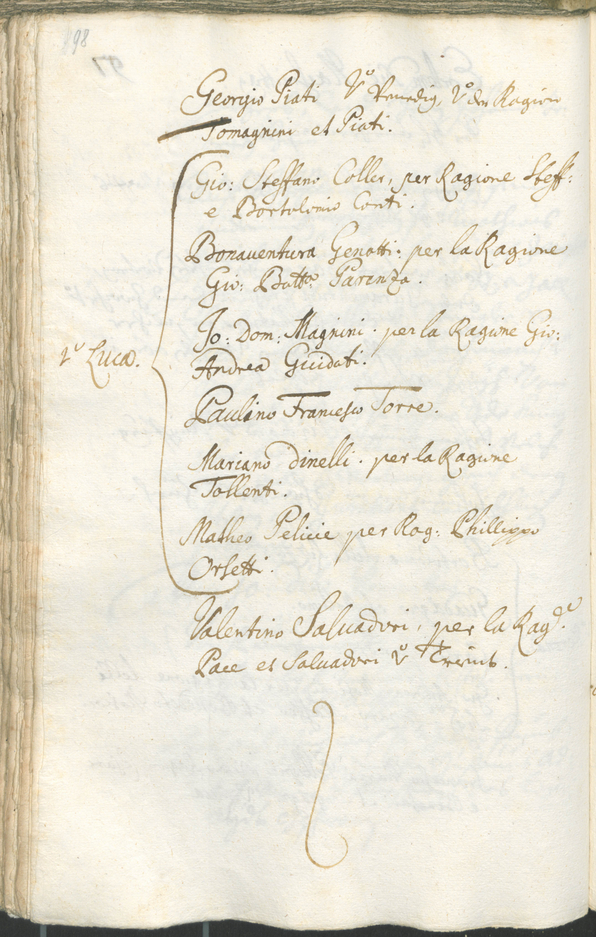 198
Georgio Piati Vº Venedig, Vº den Ragion
Tomagnini et Piati.
Gio: Steffano Coller, per Ragione Steff:
e Bortolomio Conti.
Bonaventura Genotti. per la Ragione
Gio: Batta Parenza.
Jo: Dom: Magnini. per la Ragione Gio:
vº Luca.
Andrea Guidoti.
Paulino Francesco Torre.
Mariano Dinelli. per la Ragione
Tollenti.
Matheo Pelicie per Rag: Phillippo
Orsetti.
Valentino Saluadori, per la Rag:
Pace et Saluadori vº